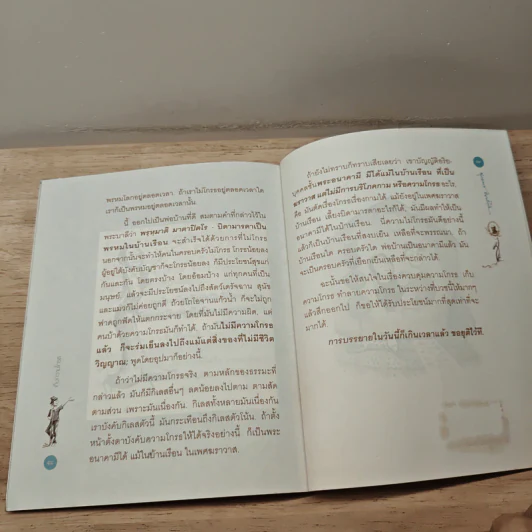 พรหมโลกอยู่ตลอดเวลา ถ้าเราไม่โกรธอยู่ตลอดเวลาใด
เราก็เป็นพรหมอยู่ตลอดเวลานั้น
นี้ ออกไปเป็นพ่อบ้านที่ดี สมตามคำที่กล่าวไว้ใน
พระบาลีว่า พฺรหฺมาติ มาตาปิตโร - บิดามารดาเป็น
พรหมในบ้านเรือน จะสำเร็จได้ด้วยการที่ไม่โกรธ
นอกจากนั้นจะทำให้คนในครอบครัวไม่โกรธ โกรธน้อยลง
ผู้อยู่ใต้บังคับบัญชาก็จะโกรธน้อยลง ก็มีประโยชน์สุขแก่
กันและกัน โดยตรงบ้าง โดยอ้อมบ้าง แก่ทุกคนที่เป็น
มนุษย์ แล้วจะมีประโยชน์ลงไปถึงสัตว์เดรัจฉาน สุนัข
และแมวก็ไม่ค่อยถูกตี ถ้วยโถโอจานแก้วน้ำ ก็จะไม่ถูก
ฟาดถูกฟัดให้แตกกระจาย โดยที่มันไม่มีความผิด แต่
คนบ้าด้วยความโกรธมันก็ทำได้ ถ้ามันไม่มีความโกรธ
แล้ว ก็จะร่มเย็นลงไปถึงแม้แต่สิ่งของที่ไม่มีชีวิต
วิญญาณ พูดโดยอุปมาก็อย่างนี้
ถ้าว่าไม่มีความโกรธจริง ตามหลักของธรรมะที่
กล่าวแล้ว มันก็มีกิเลสอื่นๆ ลดน้อยลงไปตาม ตามสัด
ตามส่วน เพราะมันเนื่องกัน กิเลสทั้งหลายมันเนื่องกัน
เราบังคับกิเลสตัวนี้ มันกระเทือนถึงกิเลสตัวโน้น ถ้าตั้ง
หน้าตั้งตาบังคับความโกรธให้ได้จริงอย่างนี้ ก็เป็นพระ
อนาคามีได้ แม้ในบ้านเรือน ในเพศฆราวาส
ถ้ายังไม่ทราบก็ทราบเสียเลยว่า เขาบัญญัติอริย-
บุคคลชั้นพระอนาคามี มีได้แม้ในบ้านเรือน ที่เป็น
ฆราวาส แต่ไม่มีการบริโภคกาม หรือความโกรธ
อนาคามีได้ในบ้านเรือน นี่ความไม่โกรธมันดีอย่างนี้
แล้วก็เป็นบ้านเรือนที่สงบเย็น เหลือที่จะพรรณนา ถ้า
บ้านเรือนใด ครอบครัวใด พ่อบ้านเป็นอนาคามีแล้ว มัน
จะเป็นครอบครัวที่เยือกเย็นเหลือที่จะกล่าวได้
ฉะนั้นขอให้สนใจในเรื่องควบคุมความโกรธ เก็บ
ความโกรธ ทำลายความโกรธ ในระหว่างที่บวชนี้ให้มากๆ
แล้วสึกออกไป ก็ขอให้ได้รับประโยชน์มากที่สุดเท่าที่จะ
มากได้
การบรรยายในวันนี้ก็เกินเวลาแล้ว ขอยุติไว้ที